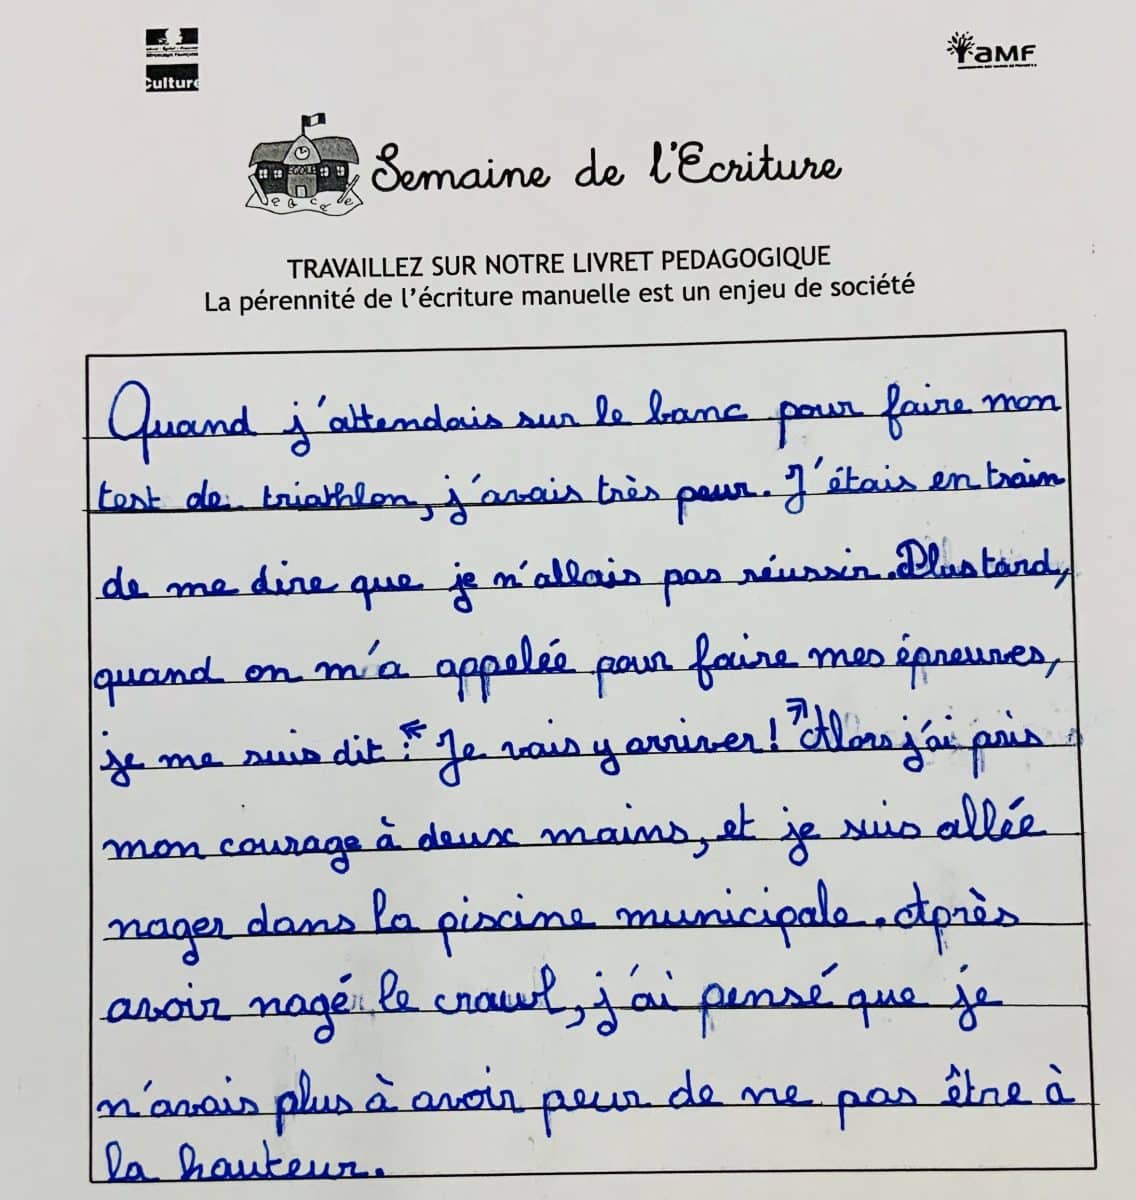 RÉPUBLIQUE FRANÇAISE
Culture
AMF
ECOLE
Semaine de l'Ecriture
TRAVAILLEZ SUR NOTRE LIVRET PEDAGOGIQUE
La pérennité de l'écriture manuelle est un enjeu de société
Quand j'attendais sur le banc pour faire mon
test de triathlon, j'avais très peur. J'étais en train
de me dire que je n'allais pas réussir. Plus tard,
quand on m'a appelée pour faire mes épreuves,
je me suis dit : « Je vais y arriver ! » Alors j'ai pris
mon courage à deux mains, et je suis allée
nager dans la piscine municipale. Après
avoir nagé le crawl, j'ai pensé que je
n'avais plus à avoir peur de ne pas être à
la hauteur.